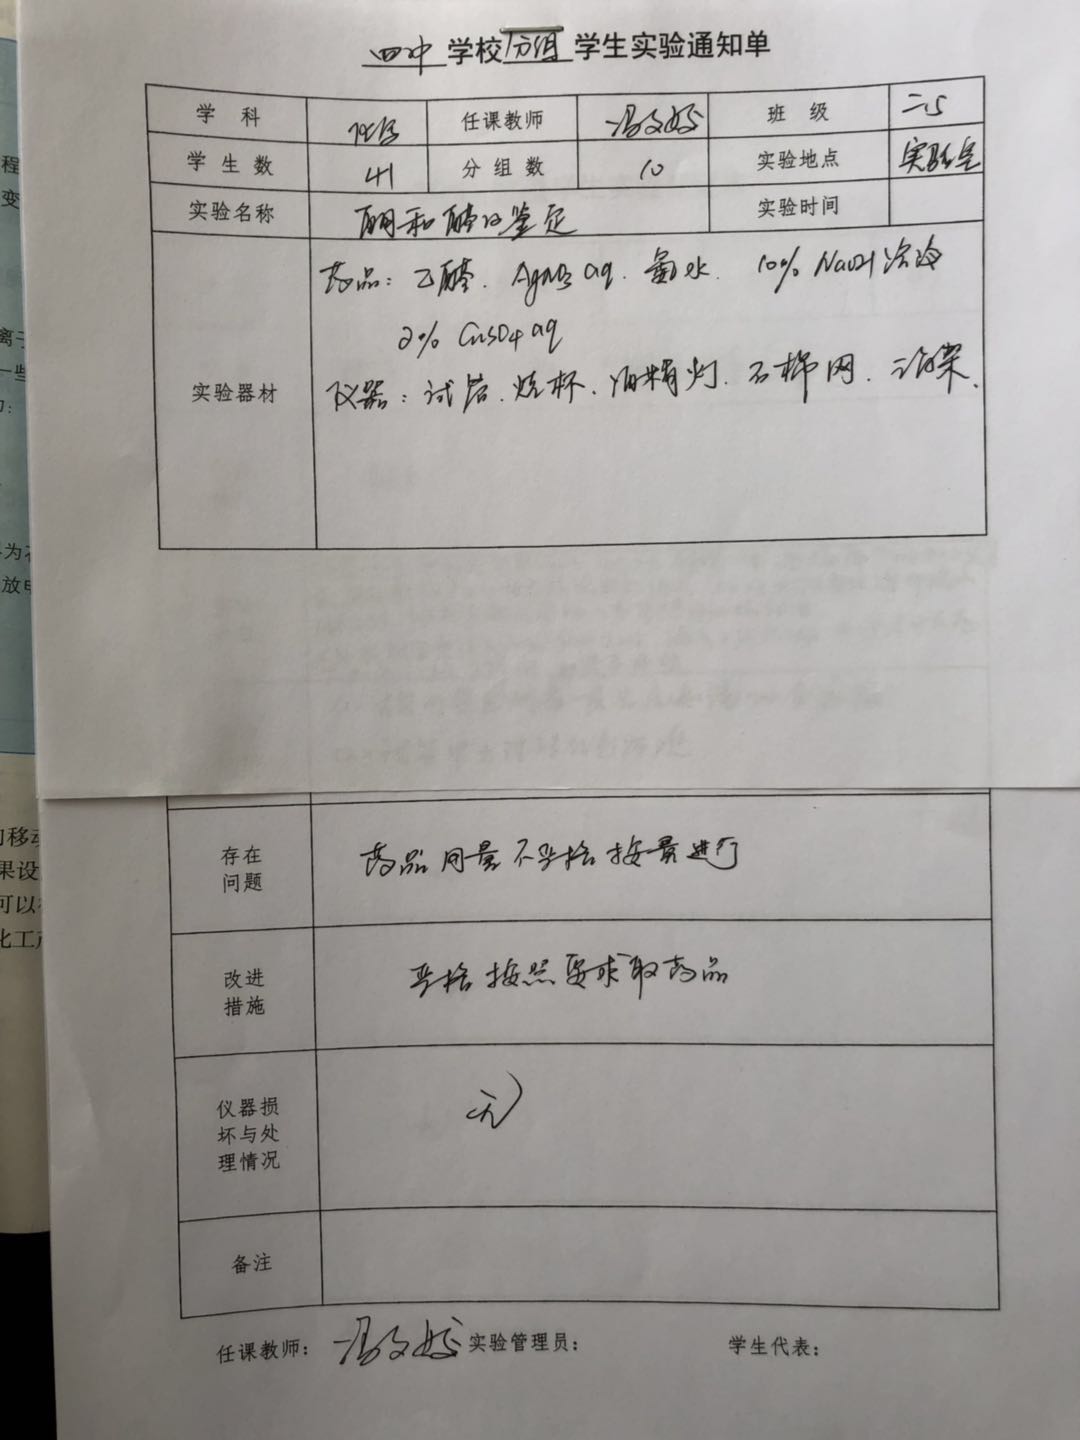 四中 学校 分组 学生实验通知单
学 科 化学 任课教师 班 级 二.5
学 生 数 41 分 组 数 10 实验地点 实验室
实验名称 酮和醛的鉴定 实验时间
药品: 乙醛. AgNO3 aq. 氨水. 10% NaOH溶液
2% CuSO4 aq
实验器材
仪器: 试管. 烧杯. 酒精灯. 石棉网.
程
变
离子
一些
为石
放电
的移动
果设
可以
化工产
存在
问题
药品用量不严格按量进行
改进
措施
严格按照要求取药品
仪器损
坏与处
理情况
无
备注
任课教师: 实验管理员: 学生代表: